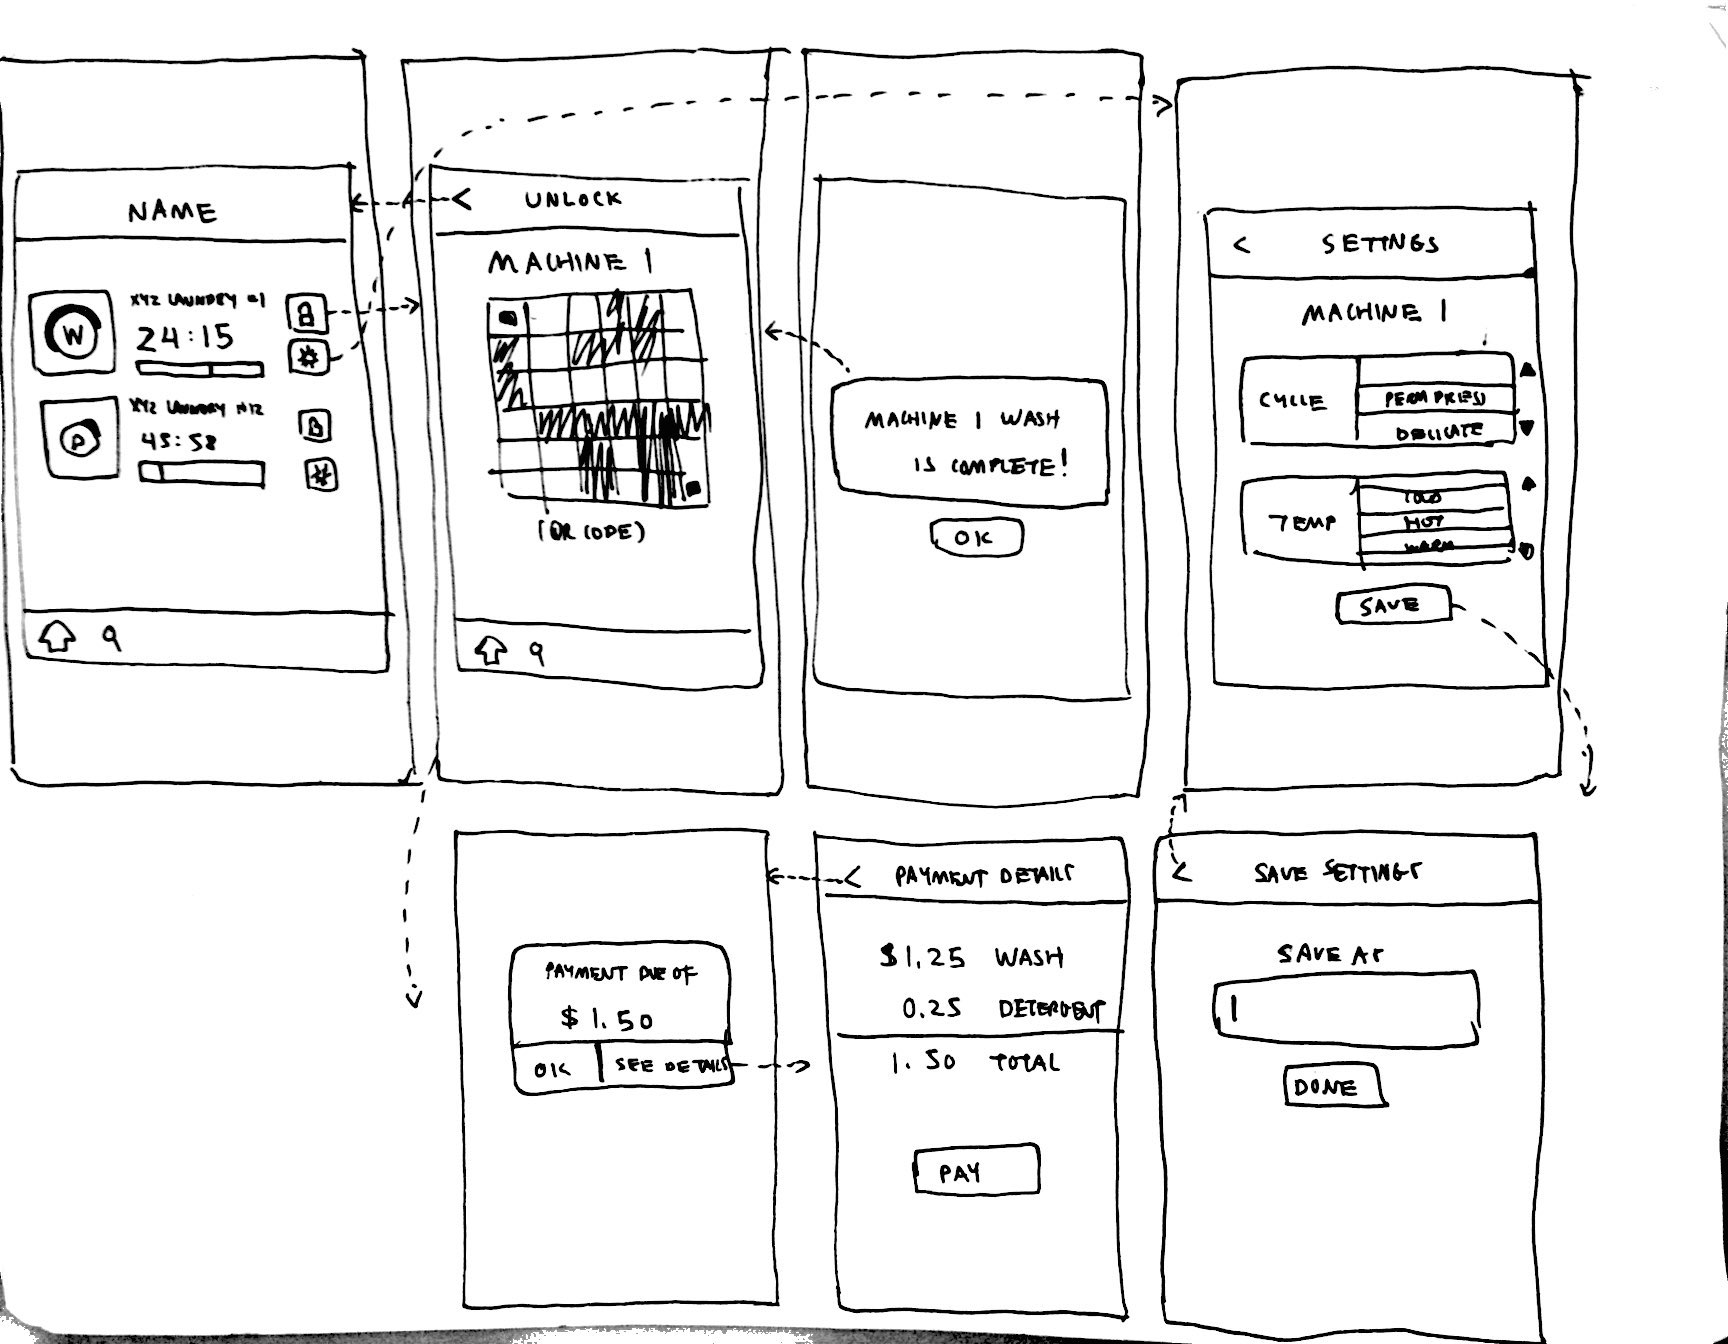 NAME
W
XYZ LAUNDRY #1
24:15
P
XYZ LAUNDRY #12
45:58
<
UNLOCK
MACHINE 1
(QR CODE)
MACHINE 1 WASH
IS COMPLETE!
OK
<
SETTINGS
MACHINE 1
CYCLE
PERM PRESS
DELICATE
TEMP
COLD
HOT
WARM
SAVE
PAYMENT DUE OF
$1.50
OK
SEE DETAILS
<
PAYMENT DETAILS
$1.25 WASH
0.25 DETERGENT
1.50 TOTAL
PAY
<
SAVE SETTINGS
SAVE AS
DONE